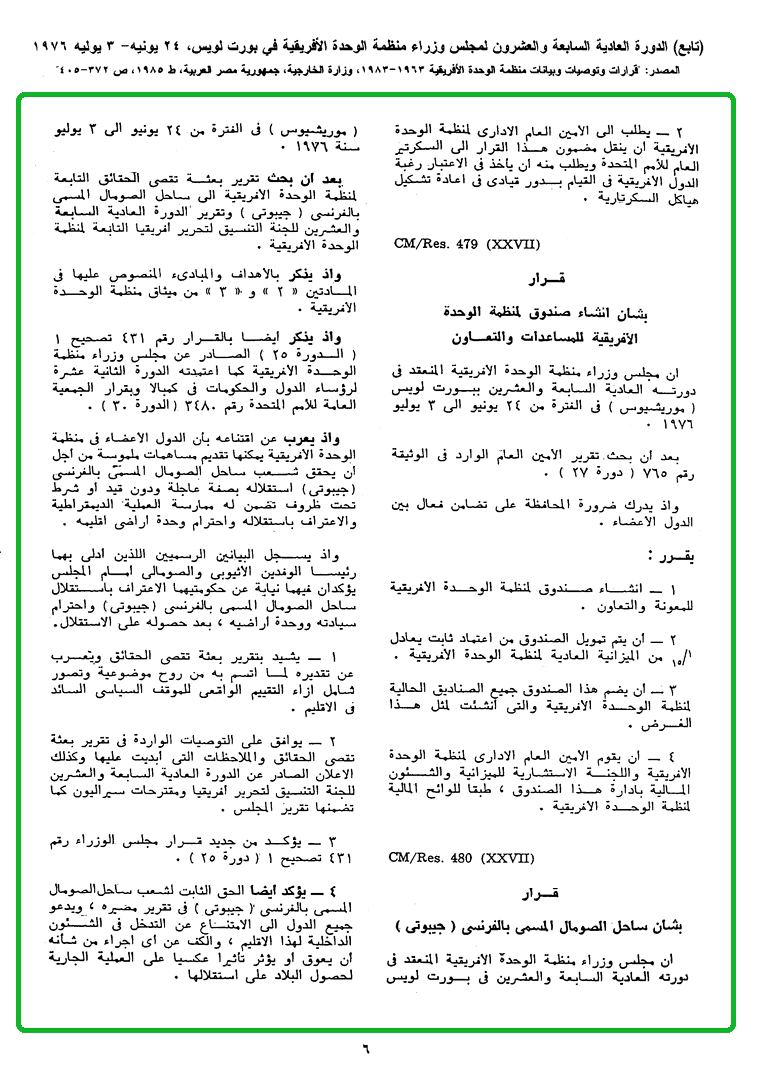 (تابع) الدورة العادية السابعة والعشرون لمجلس وزراء منظمة الوحدة الأفريقية في بورت لويس، ٢٤ يونيه- ٣ يوليه ١٩٧٦
المصدر: "قرارات وتوصيات وبيانات منظمة الوحدة الأفريقية ١٩٦٣-١٩٨٣، وزارة الخارجية، جمهورية مصر العربية، ط ١٩٨٥، ص ٣٧٢-٤٠٥"
٢ — يطلب الى الامين العام الادارى لمنظمة الوحدة
الأفريقية أن ينقل مضمون هـذا القرار الى السكرتير
العام للأمم المتحدة ويطلب منه أن يأخذ فى الاعتبار رغبة
الدول الأفريقية فى القيام بـدور قيادى فى اعادة تشكيل
هياكل السكرتارية .
CM/Res. 479 (XXVII)
قـرار
بشأن انشاء صندوق لمنظمة الوحدة
الأفريقية للمساعدات والتعـاون
ان مجلس وزراء منظمة الوحدة الأفريقية المنعقد فى
دورتـه العادية السابعة والعشرين ببـورت لويس
( موريشيوس ) فى الفترة من ٢٤ يونيو الى ٣ يوليو
١٩٧٦ .
بعد أن بحث تقرير الأمين العام الوارد فى الوثيقة
رقم ٧٦٥ ( دورة ٢٧ ) .
واذ يدرك ضرورة المحافظة على تضامن فعال بين
الدول الأعضاء .
يقـرر :
١ — انشـاء صنـدوق لمنظمة الوحـدة الأفريقية
للمعونة والتعاون .
٢ — أن يتم تمويل الصندوق من اعتماد ثابت يعادل
١/١٥ من الميزانية العادية لمنظمة الوحدة الأفريقية .
٣ — أن يضم هذا الصندوق جميع الصناديق الحالية
لمنظمة الوحـدة الأفريقية والتى أنشئت لمثل هـذا
الغـرض .
٤ — أن يقوم الأمين العام الادارى لمنظمة الوحدة
الأفريقية واللجنـة الاستشارية للميزانية والشـئون
المـالية بادارة هـذا الصندوق ، طبقا للوائح المالية
لمنظمة الوحدة الأفريقية .
CM/Res. 480 (XXVII)
قـرار
بشأن ساحل الصومال المسمى بالفرنسى ( جيبوتى )
ان مجلس وزراء منظمة الوحدة الأفريقية المنعقد فى
دورته العادية السابعة والعشرين فى بـورت لويس
( موريشيوس ) فى الفترة من ٢٤ يونيو الى ٣ يوليو
سنة ١٩٧٦ .
بعد أن بحث تقرير بعثـة تقصى الحقائق التابعة
لمنظمة الوحدة الأفريقية الى ساحل الصومال المسمى
بالفرنسى ( جيبوتى ) وتقرير الدورة العادية السابعة
والعشرين للجنة التنسيق لتحرير أفريقيا التابعة لمنظمة
الوحدة الأفريقية .
واذ يذكر بالأهداف والمبادىء المنصوص عليها فى
المـادتين « ٢ » و « ٣ » من ميثاق منظمة الوحـدة
الأفريقية .
واذ يذكر أيضـا بالقـرار رقم ٤٣١ تصحيح ١
( الـدورة ٢٥ ) الصـادر عن مجلس وزراء منظمة
الوحدة الأفريقية كما اعتمدته الدورة الثانية عشرة
لرؤساء الدول والحكومات فى كمبالا وبقرار الجمعية
العامة للأمم المتحدة رقم ٣٤٨٠ ( الدورة ٣٠ ) .
واذ يعرب عن اقتناعه بأن الدول الأعضاء فى منظمة
الوحدة الأفريقية يمكنها تقديم مساهمات ملموسة من أجل
أن يحقق شـعب ساحل الصومال المسمى بالفرنسى
(جيبوتى) استقلاله بصفة عاجلة ودون قيد أو شرط
تحت ظروف تضمن له ممارسة العملية الديمقراطية
والاعتراف باستقلاله واحترام وحدة أراضى اقليمه .
واذ يسـجل البيانين الرسميين اللذين أدلى بهما
رئيسـا الوفدين الأثيوبى والصومالى أمـام المجلس
يؤكدان فيهما نيابة عن حكومتيهما الاعتراف باسـتقلال
ساحل الصومال المسمى بالفرنسى (جيبوتى) واحترام
سيادته ووحدة أراضيه ، بعد حصوله على الاستقلال.
١ — يشيد بتقرير بعثة تقصى الحقائق ويعـرب
عن تقديره لمـا اتسم به من روح موضوعية وتصور
شامل ازاء التقييم الواقعى للموقف السياسى السائد
فى الاقليم .
٢ — يوافق على التوصيات الواردة فى تقرير بعثة
تقصى الحقائق والملاحظات التى أبديت عليها وكذلك
الاعلان الصادر عن الدورة العادية السابعة والعشرين
للجنة التنسيق لتحرير أفريقيا ومقترحات سيراليون كما
تضمنها تقرير المجلس .
٣ — يؤكـد من جديد قـرار مجلس الوزراء رقم
٤٣١ تصحيح ١ ( دورة ٢٥ ) .
٤ — يؤكد أيضا الحق الثابت لشعب ساحل الصومال
المسمى بالفرنسى ( جيبوتى ) فى تقرير مصيره ، ويدعو
جميع الدول الى الامتنـاع عن التدخل فى الشـئون
الداخلية لهذا الاقليم ، والكف عن أى اجراء من شـأنه
أن يعوق أو يؤثر تأثيرا عكسيا على العملية الجارية
لحصول البلاد على استقلالها .
٦